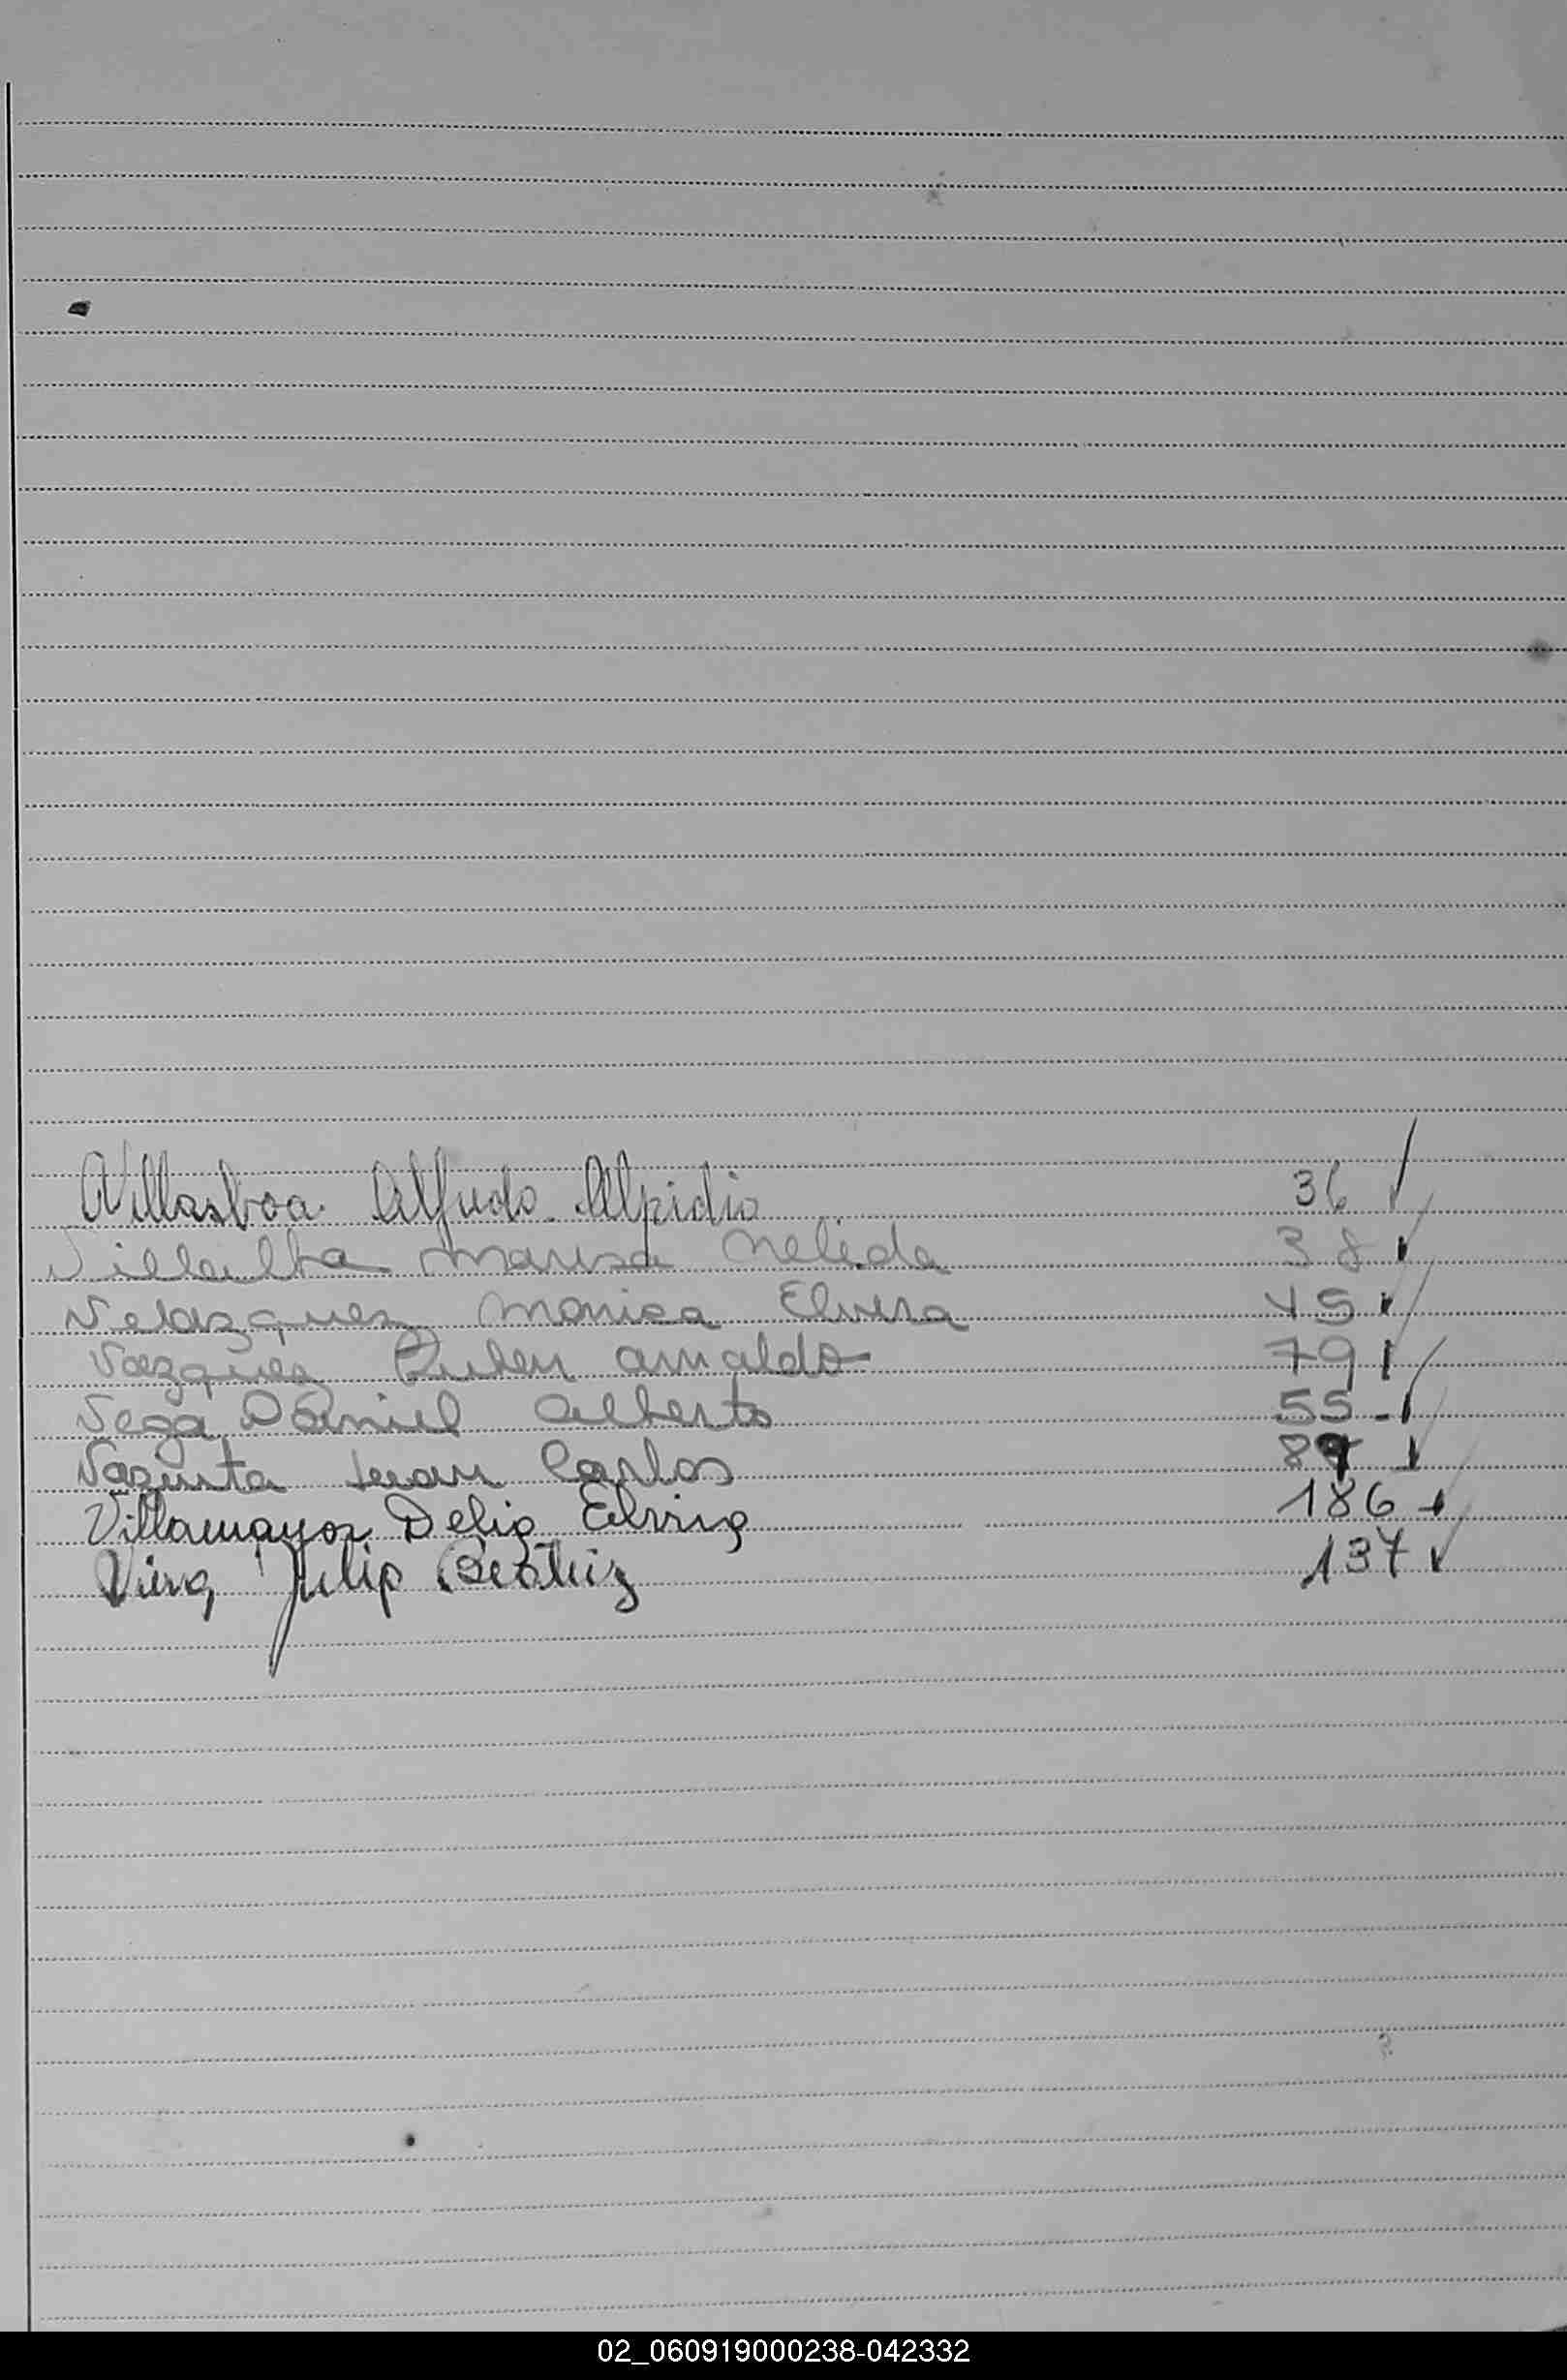 Villasboa Alfredo Alpidio 36
Villalba Marisa Nelida 38
Velazquez Monica Elvira 45
Vazquez Ruben Arnaldo 79
Vega Daniel Alberto 55
Juan Carlos
Villamayor Delia Elvira 186
Julia Beatriz 137
02_060919000238-042332